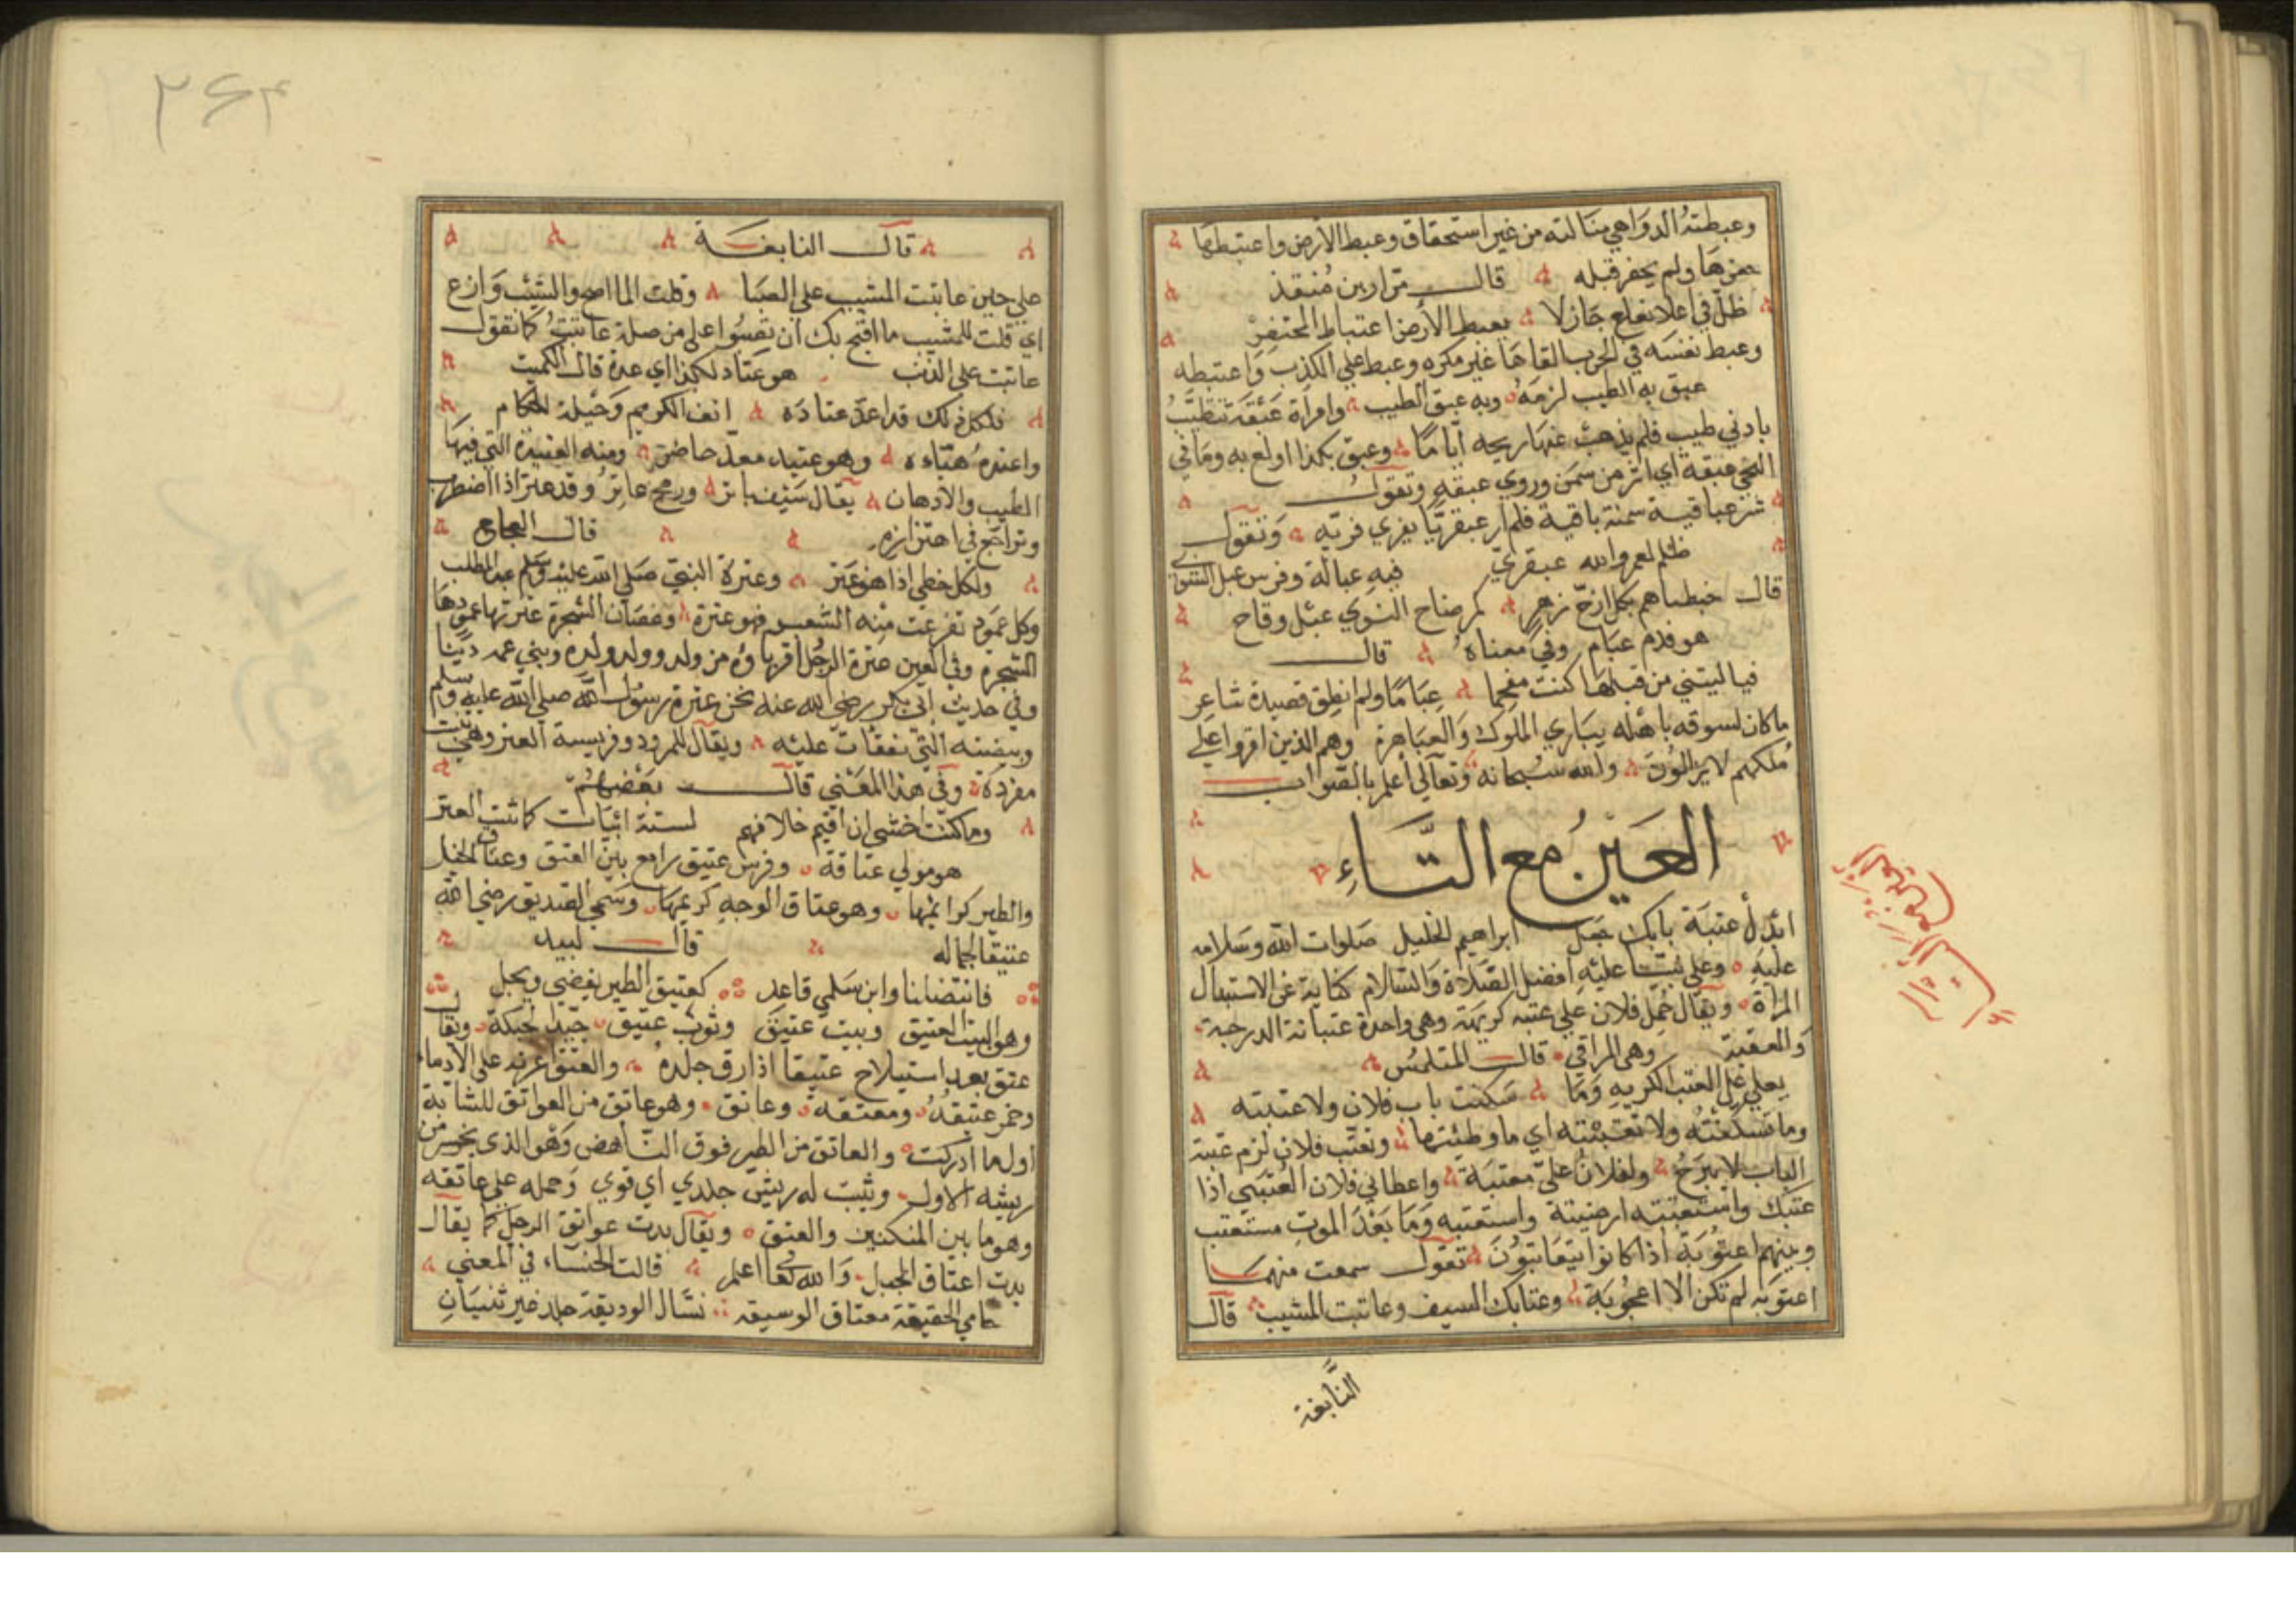 وعبطته الدواهي منالته من غير استحقاق وعبط الارض واعتبطها
حفرها ولم يحفر قبله قال مرار بن منقذ
ظل في اعلا يفاع جازلا يعبط الأرض اعتباط المحتفر
وعبط نفسه في الحرب القاها غير مكره وعبط علي الكذب واعتبطه
عبق به الطيب لزمه وبه عبق الطيب وامرأة عبقة تتطيب
بادني طيب فلم يذهب عنها ريحه اياما وعبق بكذا اولع به وما في
النحي عبقة اي اثر من سمن وروي عبقه وتقول
شر عباقية سمنة باقية فلم أر عبقريا يفري فريه وتقول
ظلم لعمر والله عبقري فيه عبالة وفرس عبل الشوي
قال خبطناهم بكل ازح نهز كمرضاح النوي عبل وقاح
هو فدم عبام وفي معناه قال
فيا ليتني من قبلها كنت مفحما عباما ولم انطق قصيدة شاعر
ما كان لسوقه باهله يباري الملوك والعباهرة وهم الذين اقروا علي
ملكهم لا يزالون والله سبحانه وتعالي أعلم بالصواب
العين مع التاء
ابدل عتبة بابك جعل ابراهيم الخليل صلوات الله وسلامه
عليه وعلي نبينا عليه افضل الصلاة والسلام كناية عن الاستبدال
المرأة ويقال حمل فلان علي عتبه كريهة وهي واحدة عتبات الدرجة
والعقبة وهي المراقي قال المتلمس
يعلي علي العتب الكريه وما سكنت باب فلان ولا عتبته
وما تسكفته ولا تعتبته اي ما وطئتها وتعتب فلان لزم عتبة
الباب لا يبرح ولفلان علي معتبة واعطاني فلان العتبي اذا
عتبك واستعتبته ارضيته واستعتبه وما بعد الموت مستعتب
وبينهم اعتوبة اذا كانوا يتعاتبون تقول سمعت منهما
اعتوبه لم تكن الا اعجوبة وعتابك السيف وعاتبت المشيب قال
النابغة
٢٦٣
قال النابغة
علي حين عاتبت المشيب علي الصبا وقلت الما اصح والشيب وازع
اي قلت للمشيب ما اقبح بك ان تصبوا علي من صلة عاتبت كما تقول
عاتبت علي الذنب هو عتاد لكذا اي عدة قال الكميت
فلكل ذلك قد اعد عتاده انف الكريم وحيلة للحكام
واعتده هياه وهو عتيد معد حاضر ومنه العتيدة التي فيها
الطيب والادهان يقال سيف باتر ورمح عاتر وقد عتر اذا اضطرب
وتراجع في اهتزازه قال العجاج
ولكل خطي اذا هز عتر وعترة النبي صلي الله عليه وسلم عبد المطلب
وكل عمود تفرعت منه الشعب فهو عترة وغصان الشجرة عترتها عمودها
الشجرة وفي العين عترة الرجل اقرباؤه من ولده وولد ولده وبني عمه دنيا
وفي حديث ابي بكر رضي الله عنه نحن عترة رسول الله صلي الله عليه وسلم
وبيضته التي تفقات عليه ويقال للمردود فريسة العتر وهي نبت
مفردة وفي هذا المعني قال بعضهم
وما كنت اخشي ان اقيم خلافهم لستة ابيات كما نبت العتر
هو مولي عتاقة وفرس عتيق رائع بين العتق وعتاق الخيل
والطير كرائمها وهو عتاق الوجه كريمها وسمي الصديق رضي الله
عتيقا لجماله قال لبيد
فانتضلنا وابن سلمي قاعد كعتيق الطير يغضي ويجل
وهو البيت العتيق وبيت عتيق وثوب عتيق جيد الحبكة ويقال
عتق بعد استيلاح عتيقا اذا رق جلده
وخمر عتيقة ومعتقة وعاتق وهو عاتق من العواتق للشابة
اول ما ادركت والعاتق من الطير فوق الناهض وهو الذي يحسر من
ريشه الاول وينبت له ريش جلدي اي قوي وحمله علي عاتقه
وهو ما بين المنكبين والعنق ويقال بدت عواتق الرجل كما يقال
بدت اعناق الجبل والله تعا اعلم قالت الخنساء في المعني
حامي الحقيقة معتاق الوسيقة نسال الوديقة جلد غير ثنيان